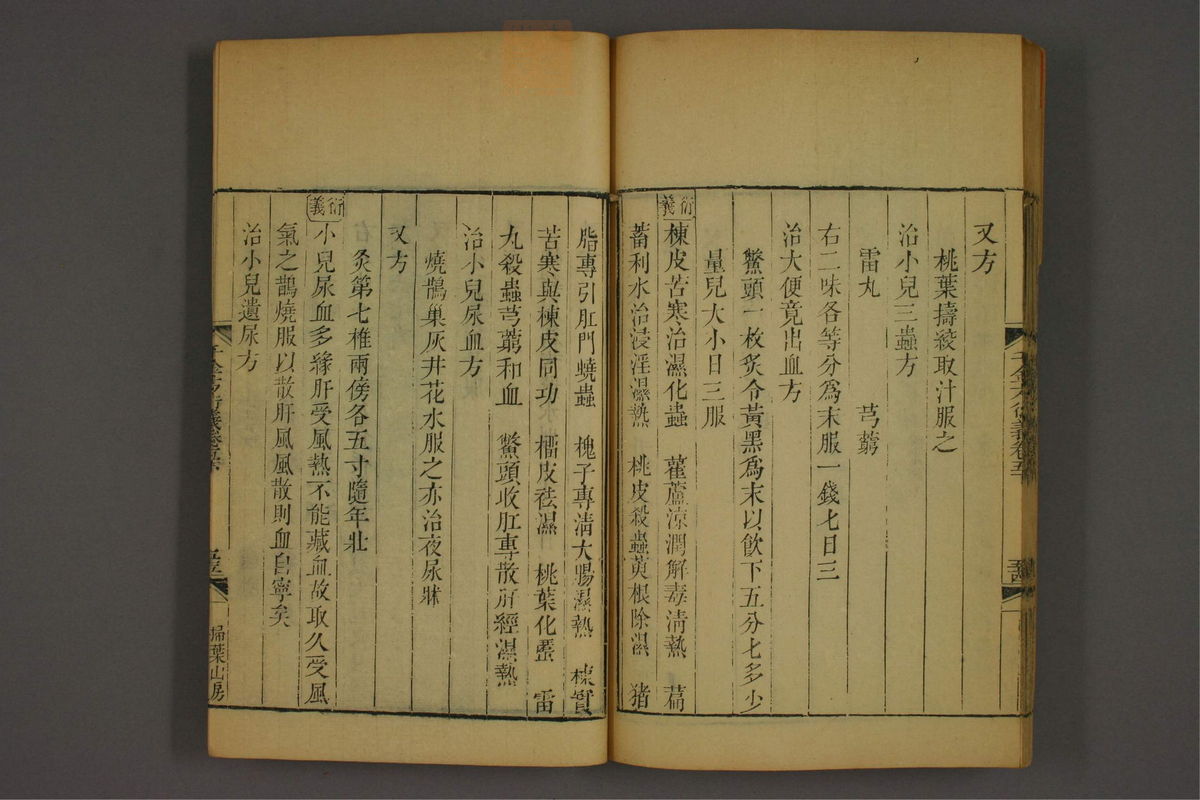 又方
桃葉擣絞取汁服之
治小兒三蟲方
雷丸 芎藭
右二味各等分爲末服一錢匕日三
治大便竟出血方
鱉頭一枚炙令黃黑爲末以飲下五分匕多少
量兒大小日三服
衍義
楝皮苦寒治濕化蟲 雚蘆涼潤解毒清熱 萹
蓄利水治浸淫濕熱 桃皮殺蟲萸根除濕 猪
脂專引肛門蟯蟲 槐子專清大腸濕熱 楝實
苦寒與楝皮同功 櫺皮祛濕 桃葉化䘌 雷
丸殺蟲芎藭和血 鱉頭收肛專散肝經濕熱
治小兒尿血方
燒鵲巢灰井花水服之亦治夜尿牀
又方
灸第七椎兩傍各五寸隨年壯
衍義
小兒尿血多緣肝受風熱不能藏血故取久受風
氣之鵲燒服以散肝風風散則血自寧矣
治小兒遺尿方
千金方衍義卷五
掃葉山房